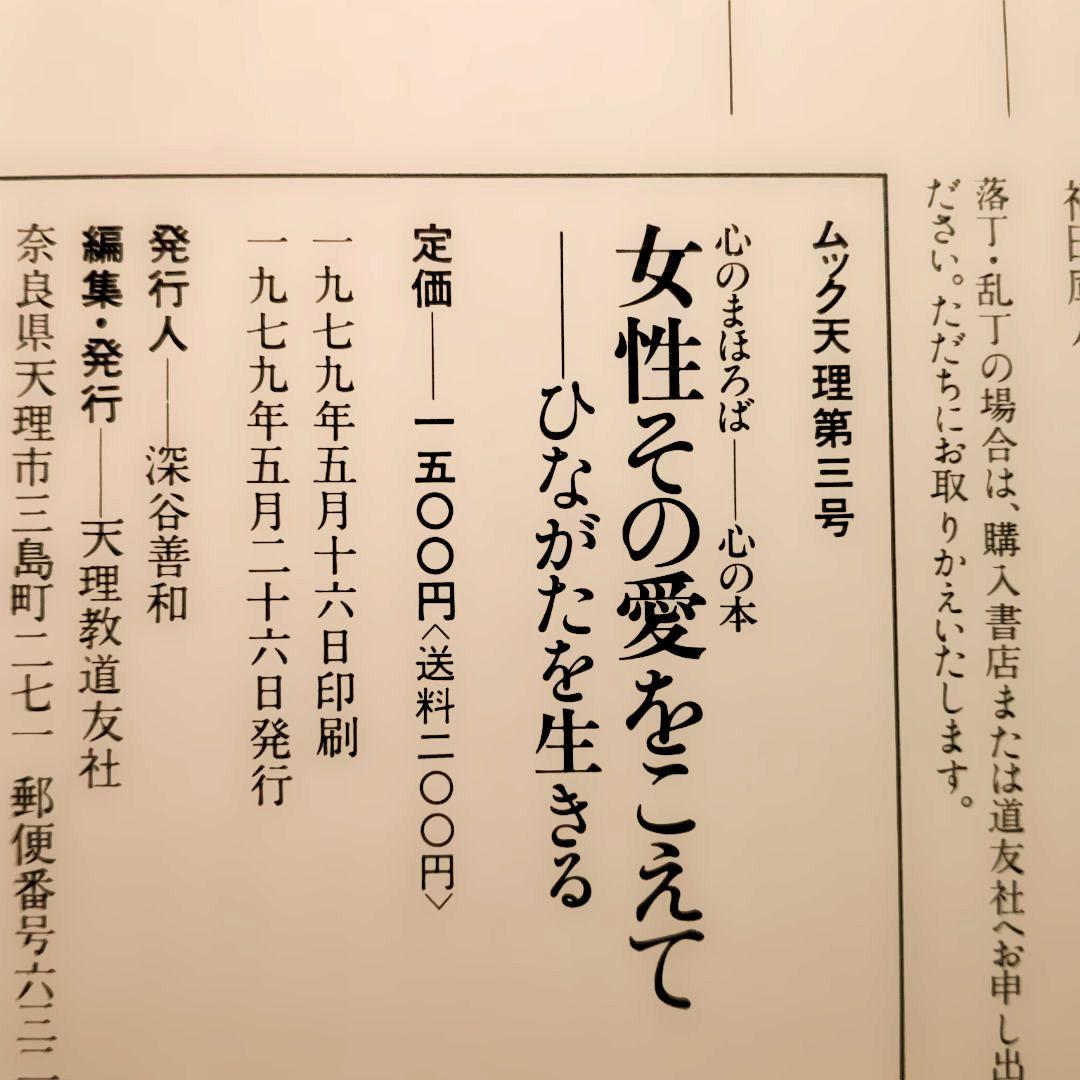 落丁・乱丁の場合は、購入書店または道友社へお申し出
ださい。ただちにお取りかえいたします。
ムック天理第三号
心のまほろば——心の本
女性その愛をこえて
——ひながたを生きる
定価——一五〇〇円〈送料二〇〇円〉
一九七九年五月十六日印刷
一九七九年五月二十六日発行
発行人——深谷善和
編集・発行——天理教道友社
奈良県天理市三島町二七一 郵便番号六三二